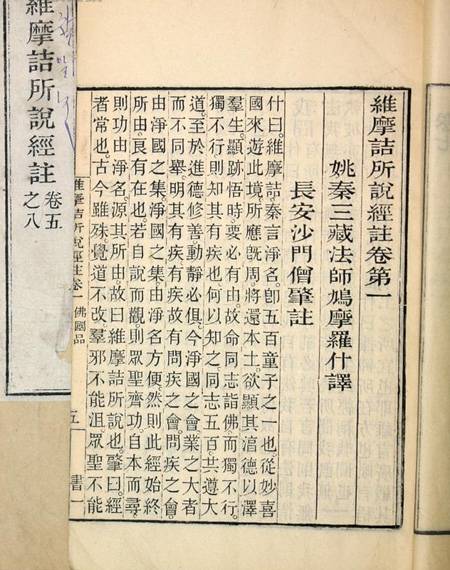 維摩詰所說經註卷第一
姚秦三藏法師鳩摩羅什譯
長安沙門僧肇註
什曰。維摩詰。秦言淨名。卽五百童子之一也。從妙喜
國來遊此境。所應旣周。將還本土。欲顯其淳德以澤
羣生。顯跡悟時。要必有由。故命同志詣佛而獨不行。
獨不行則知其有疾也。何以知之。同志五百共遵大
道。至於進德修善。動靜必俱。今淨國之會。業之大者
而不同舉。明其有疾。有疾故有問疾之會。問疾之會
由淨國之集。淨國之集由淨名方便。然則此經始終
所由。良有在也。若自說而觀。則眾聖齊功。自本而尋
則功由淨名。源其所由。故曰維摩詰所說也。肇曰。經
者常也。古今雖殊。覺道不改。羣邪不能沮。眾聖不能
維摩詰所說經註卷一 佛國品
五
書一
維摩詰所說經註
卷五
之八